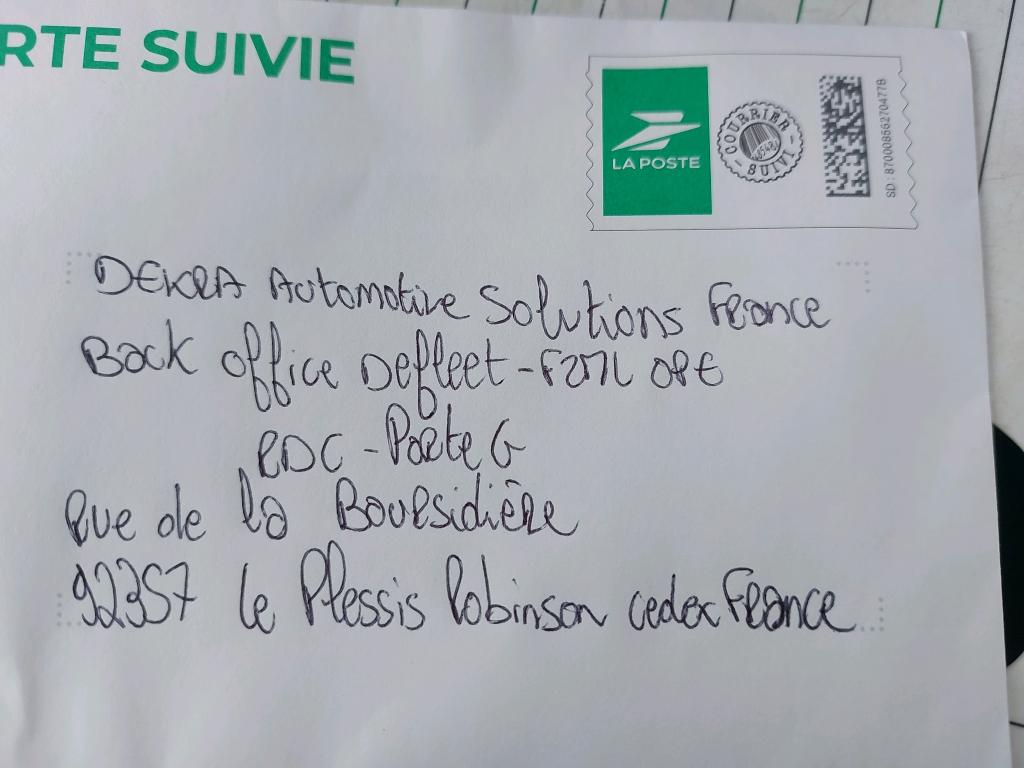 RTE SUIVIE
LA POSTE
COURRIER SUIVI
SD : 87000866270477B
DEKRA Automotive Solutions France
Back office Defleet -
RDC - Porte G
Rue de la Boursidière
92357 le Plessis Robinson cedex France